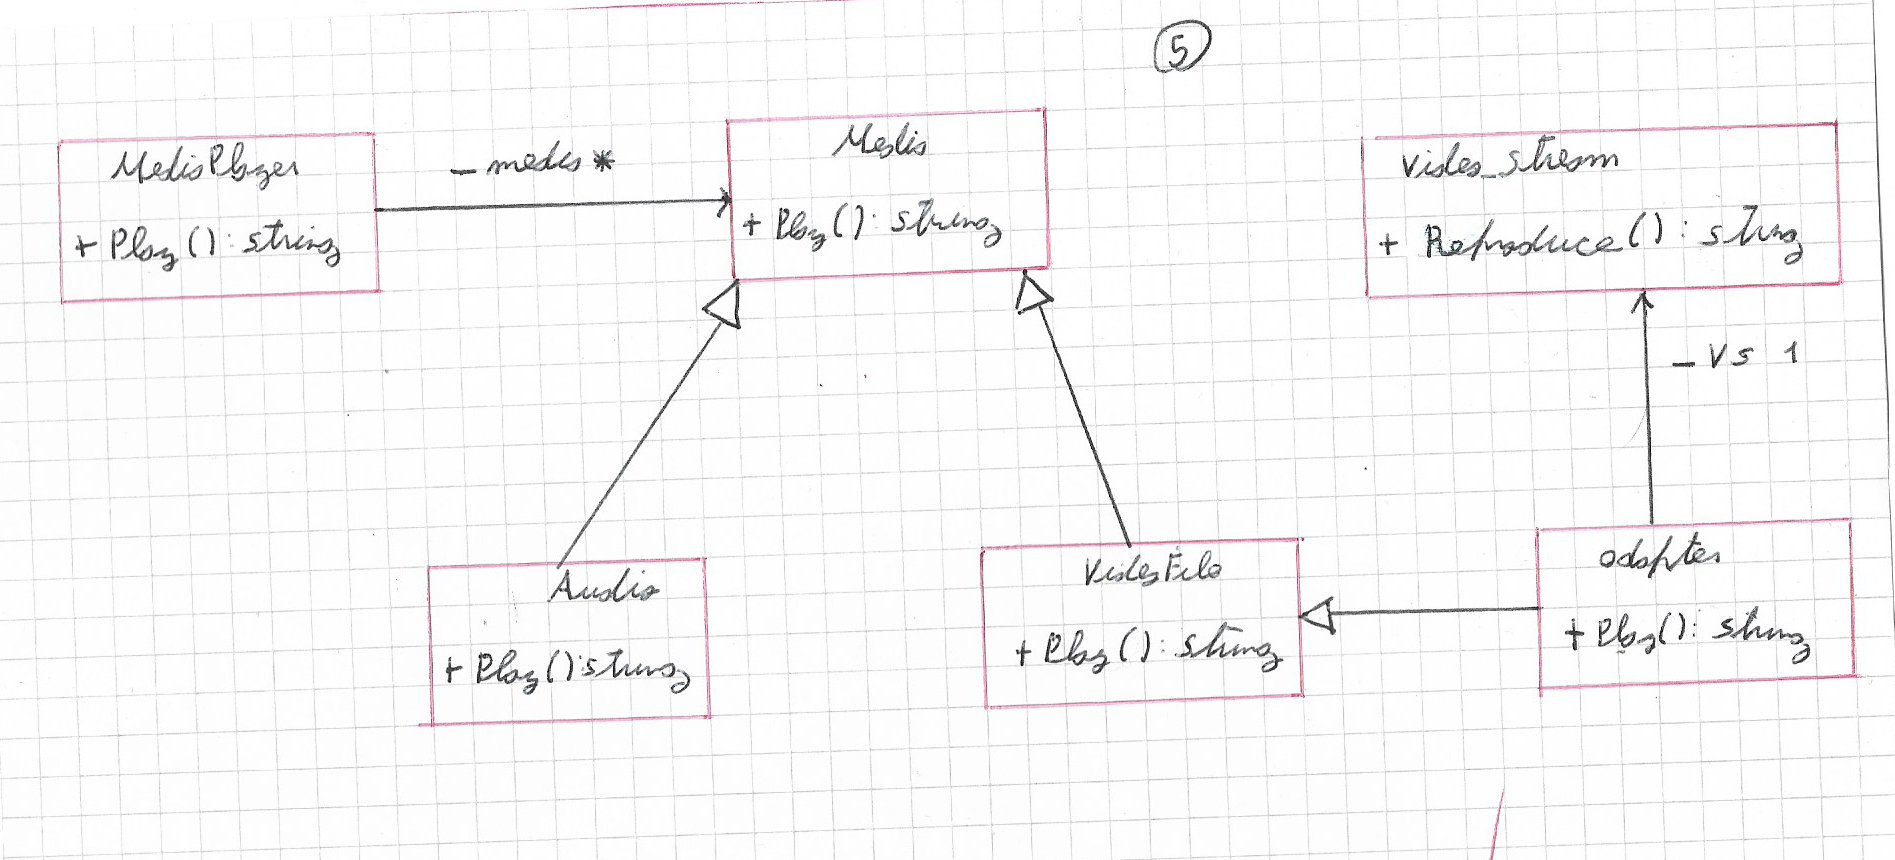 5
MediaPlayer
+ Play(): string
- media *
Media
+ Play(): string
Video_stream
+ Reproduce(): string
- vs 1
Audio
+ Play(): string
VideoFile
+ Play(): string
adapter
+ Play(): string